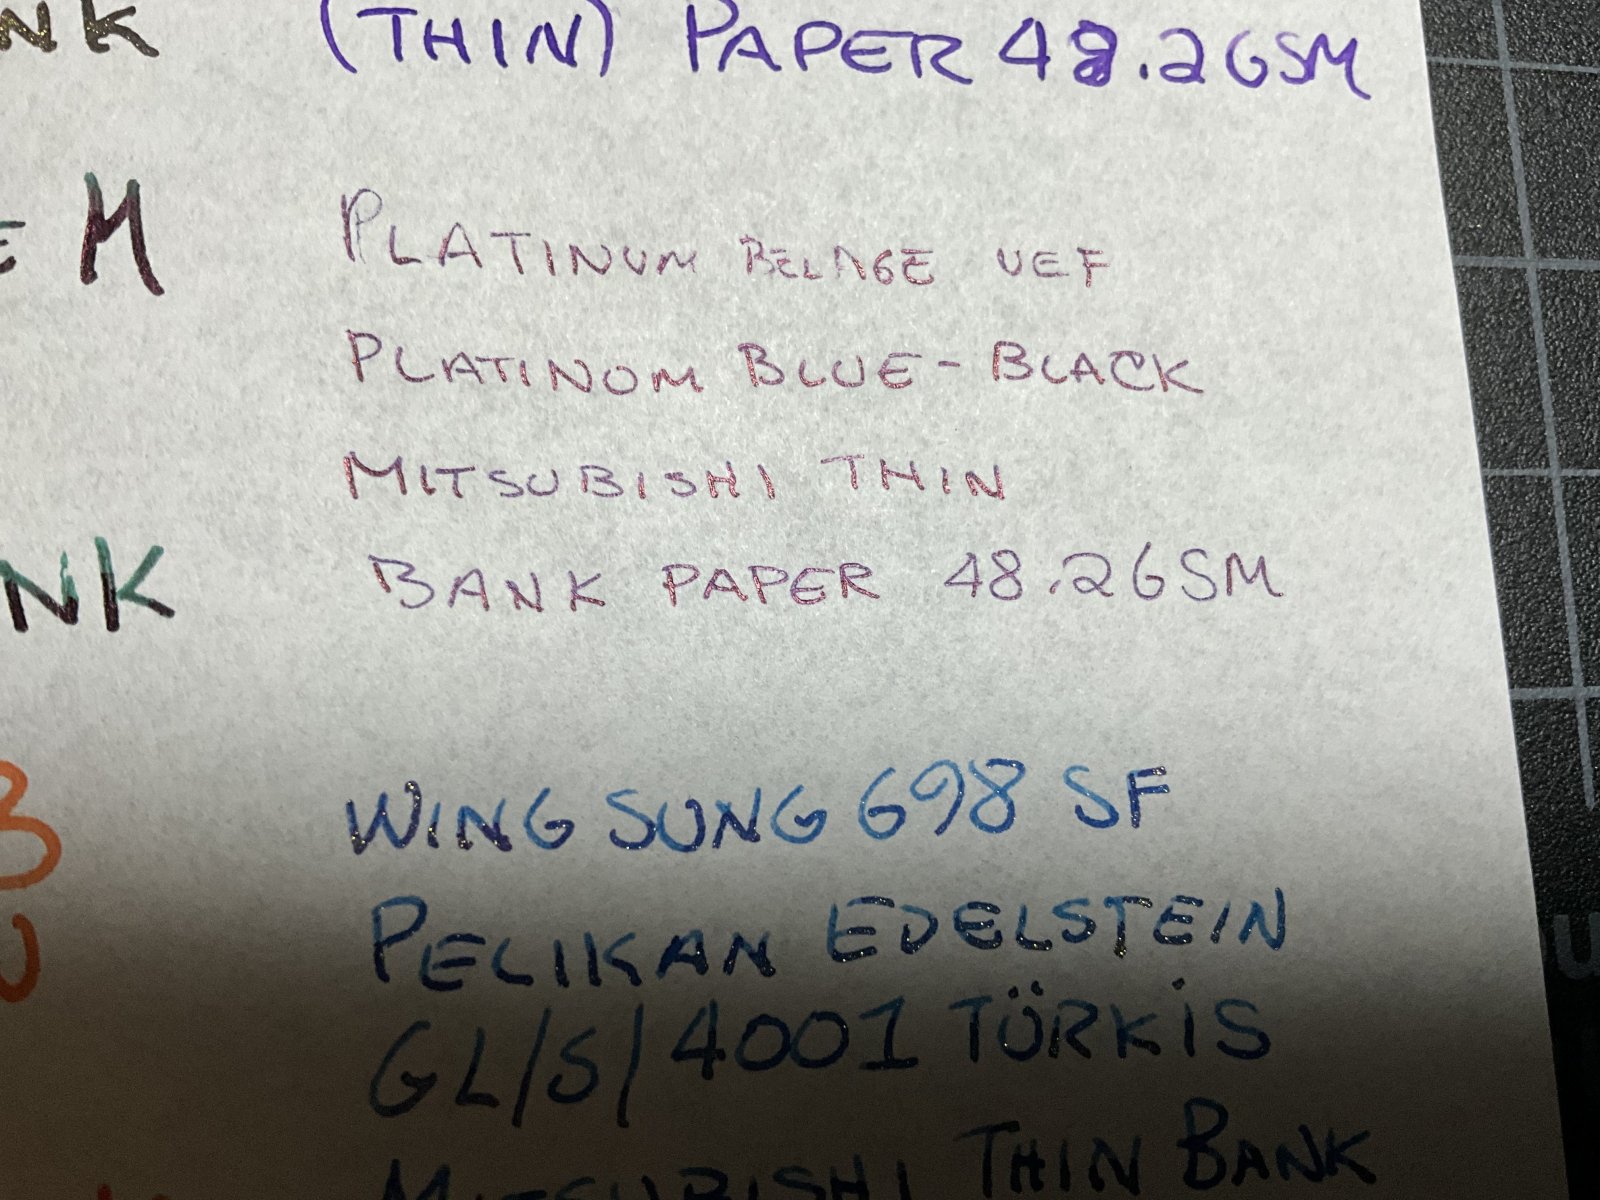 NK (THIN) PAPER 48.2GSM
E M PLATINUM BELAGE UEF
PLATINOM BLUE-BLACK
MITSUBISHI THIN
NK BANK PAPER 48.2GSM
B WING SUNG 698 SF
PELIKAN EDELSTEIN
GL/S/4001 TÜRKIS
MITSUBISHI THIN BANK